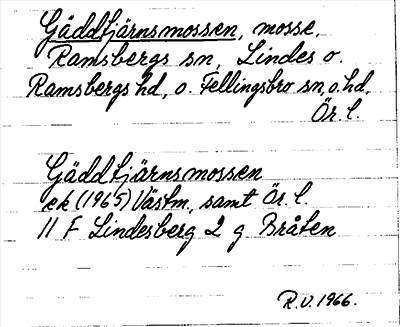 Gäddtjärnsmossen, mosse,
Ramsbergs sn, Lindes o.
Ramsbergs hd, o. Fellingsbro sn, o. hd,
Ör. l.
Gäddtjärnsmossen
ek (1965) Västm, samt Ör. l.
11 F Lindesberg 2 g Bråten
R.V. 1966.